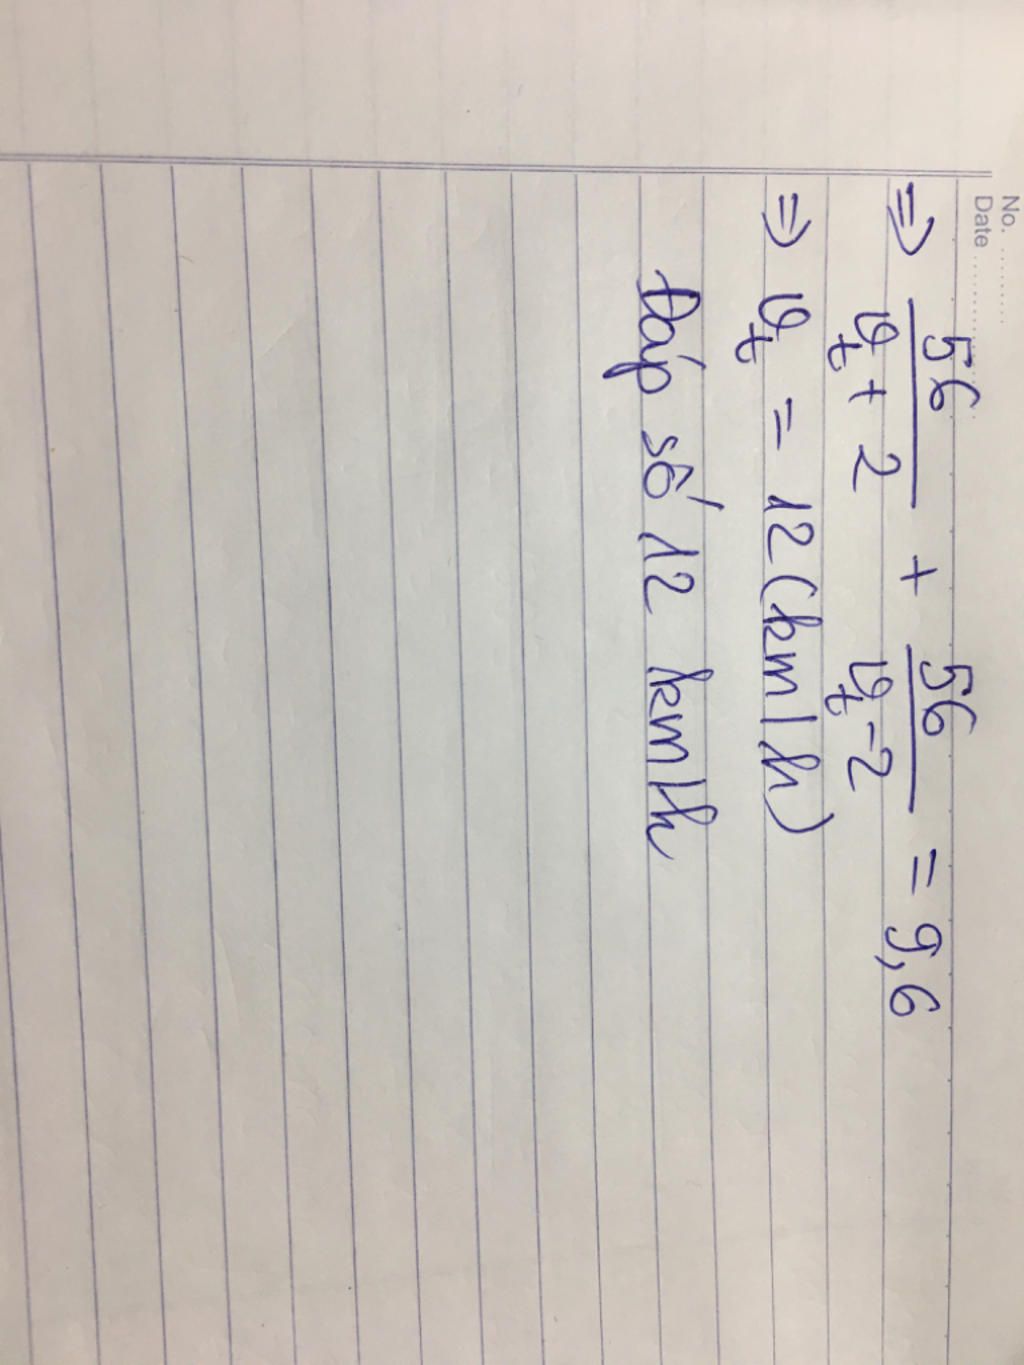 No. ........
Date ...............
=> 56/(v_t + 2) + 56/(v_t - 2) = 9,6
=> v_t = 12 (km/h)
Đáp số 12 km/h